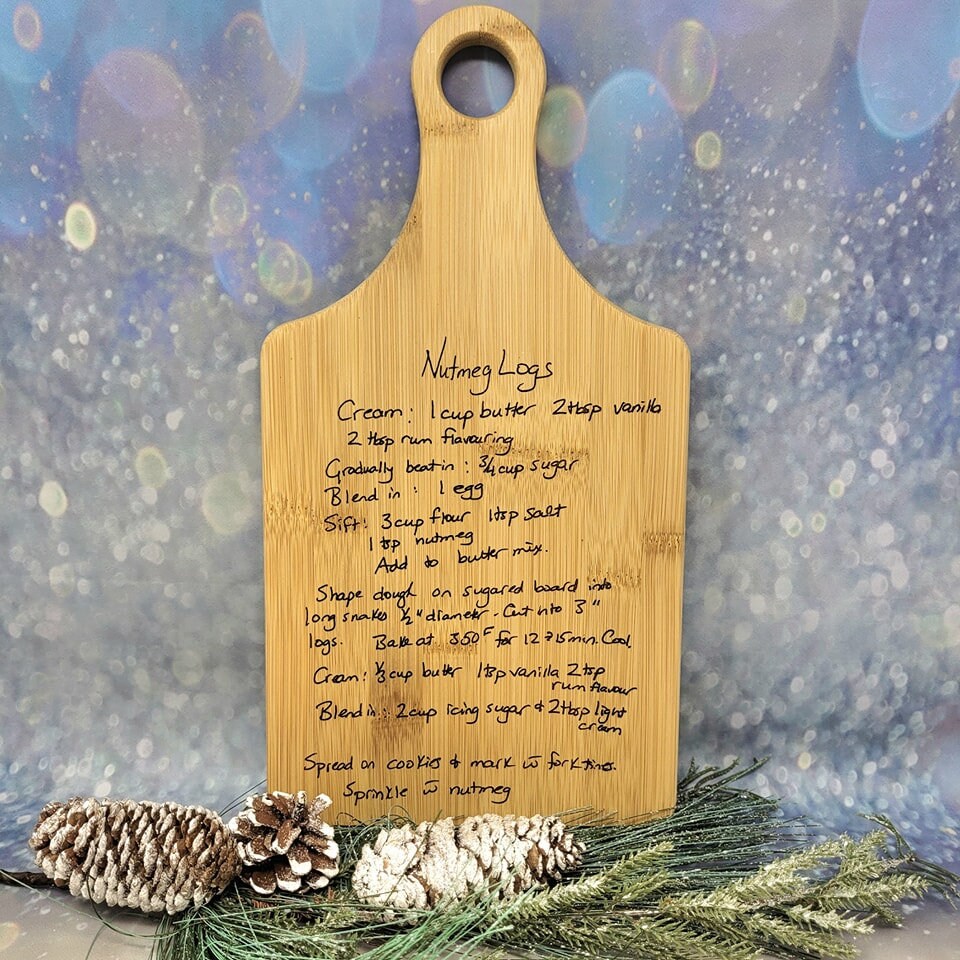 Nutmeg Logs
Cream: 1 cup butter 2 tbsp vanilla
2 tbsp rum flavouring
Gradually beat in: 3/4 cup sugar
Blend in: 1 egg
Sift: 3 cup flour 1 tsp salt
1 tsp nutmeg
Add to butter mix.
Shape dough on sugared board into
long snakes 1/2" diameter. Cut into 3"
logs. Bake at 350°F for 12 → 15 min. Cool.
Cream: 1/3 cup butter 1 tsp vanilla 2 tsp
rum flavour
Blend in: 2 cup icing sugar & 2 tbsp light
cream
Spread on cookies & mark w̄ fork tines.
Sprinkle w̄ nutmeg